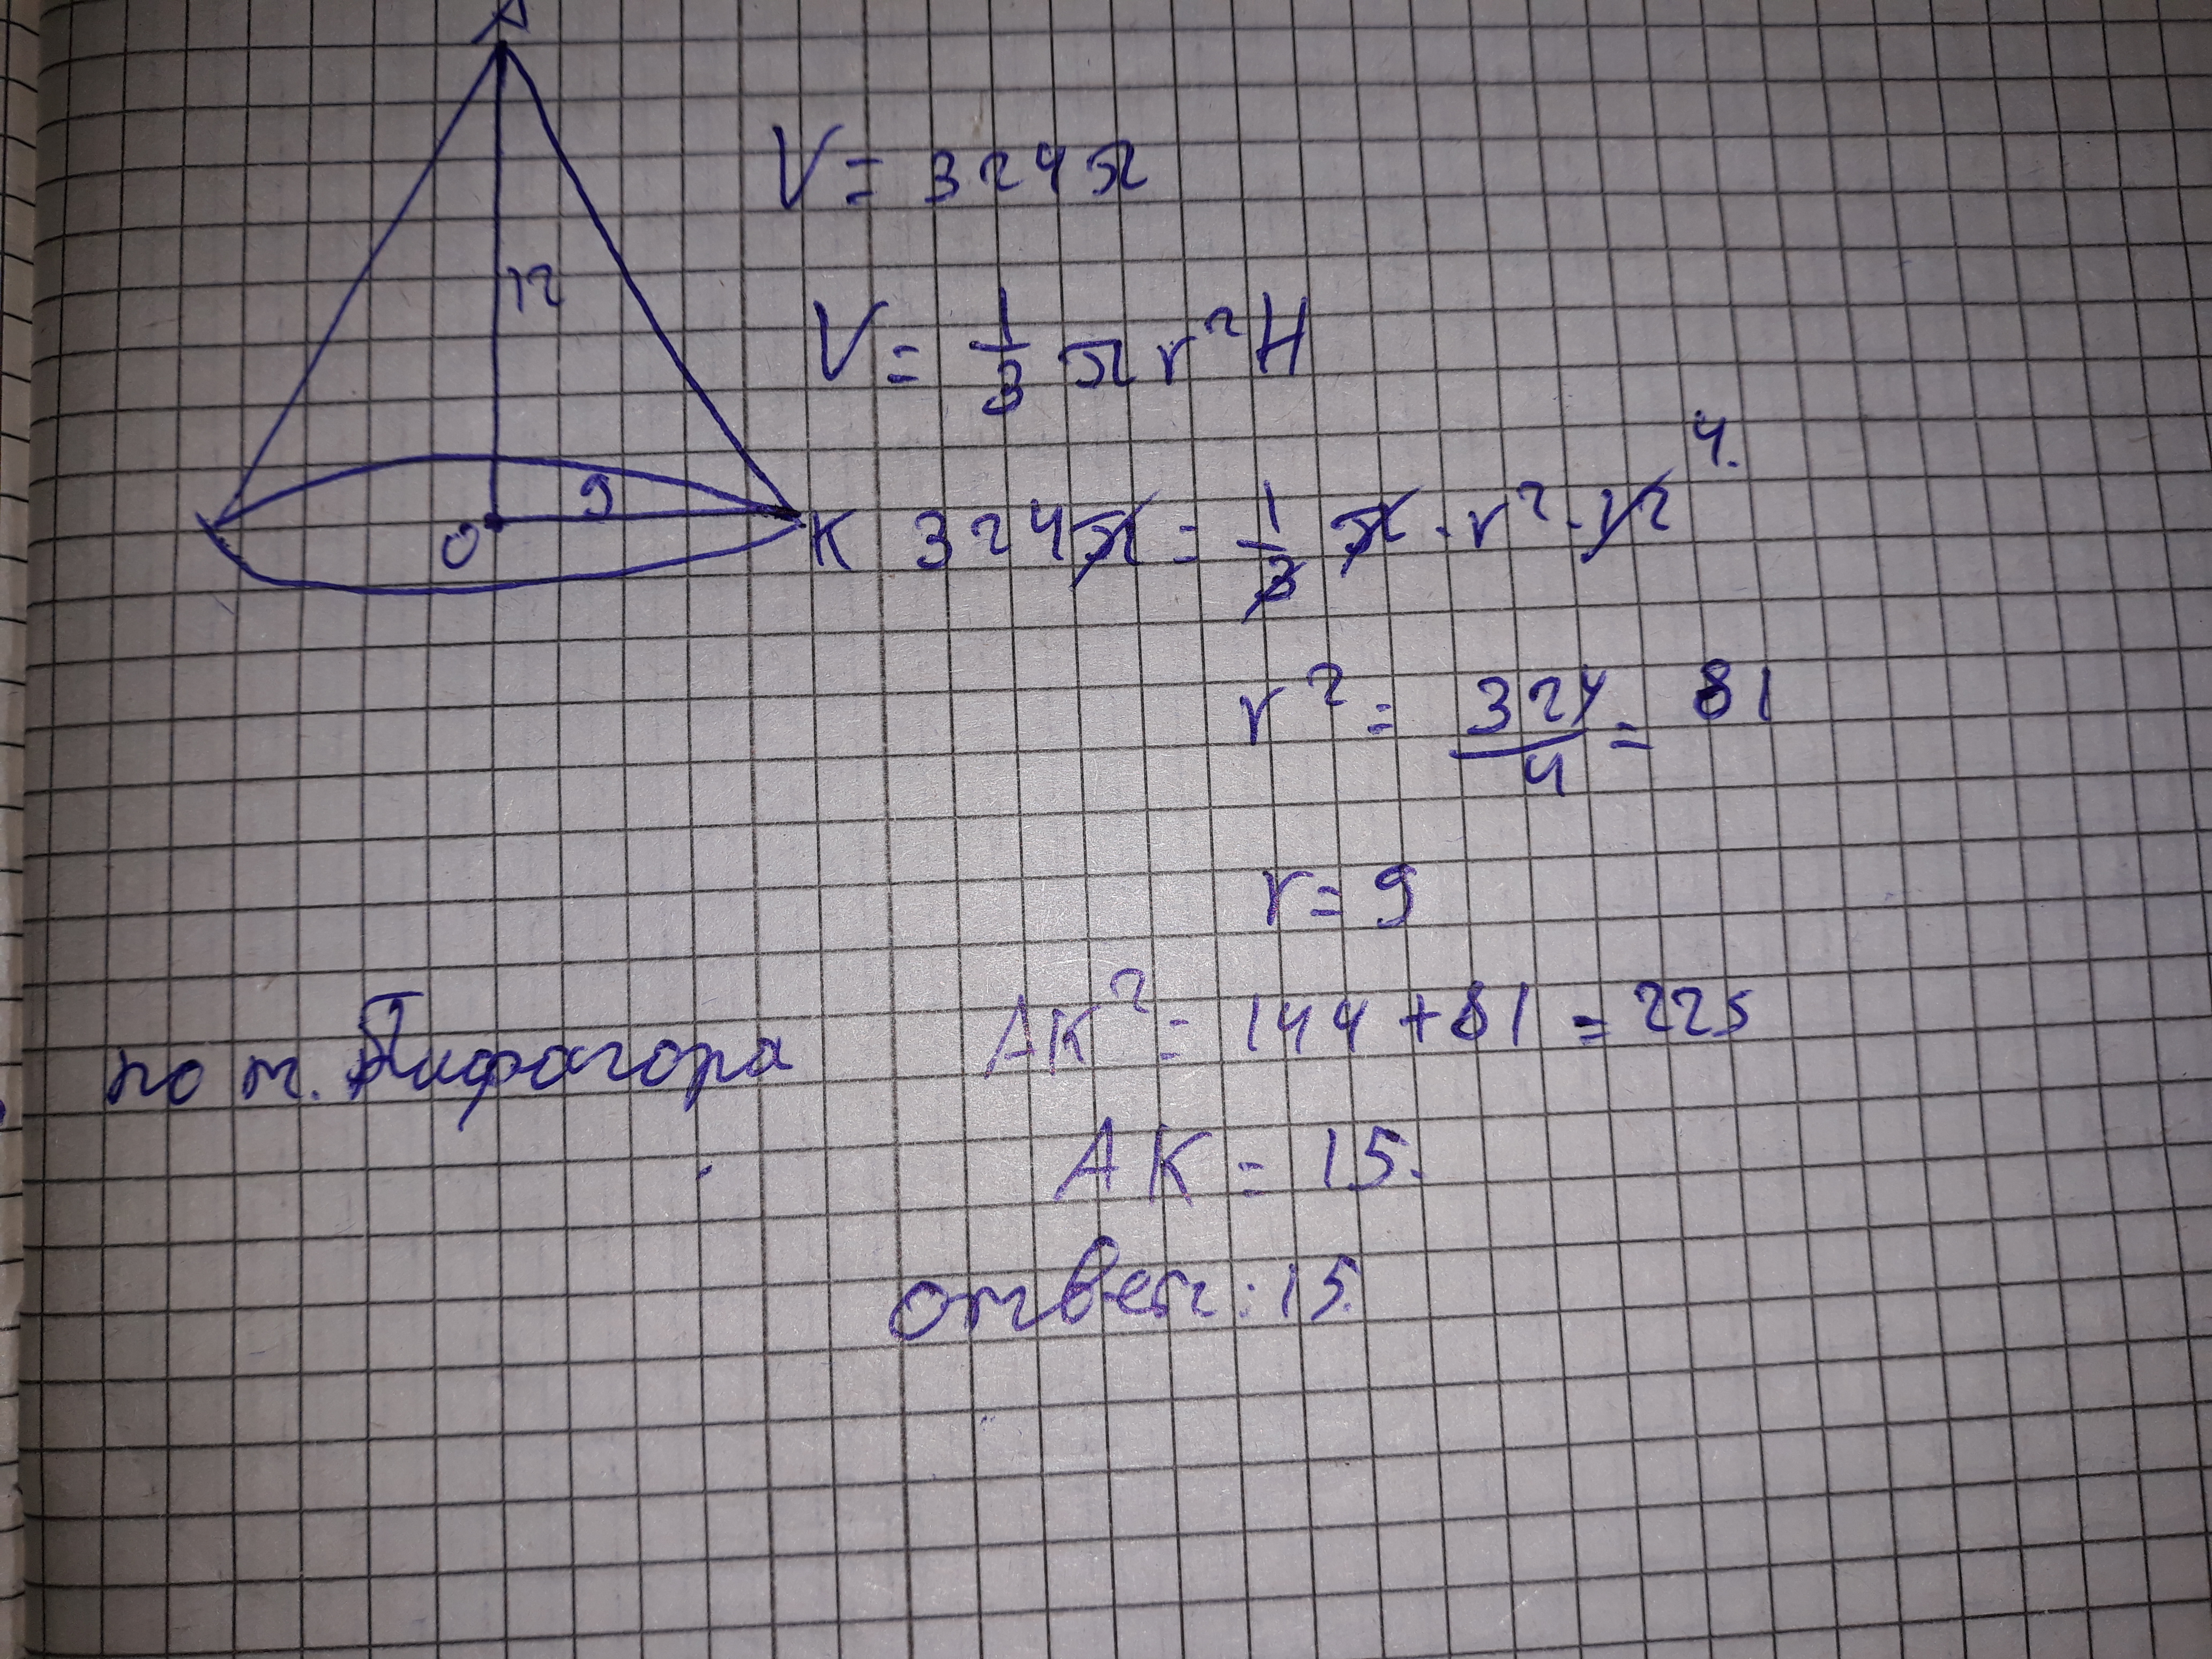 A
12
9
O
K
V = 324π
V = 1/3 π r² H
324π = 1/3 π · r² · 12 4.
r² = 324/4 = 81
r = 9
по т. Пифагора AK² = 144 + 81 = 225
AK = 15.
ответ: 15.